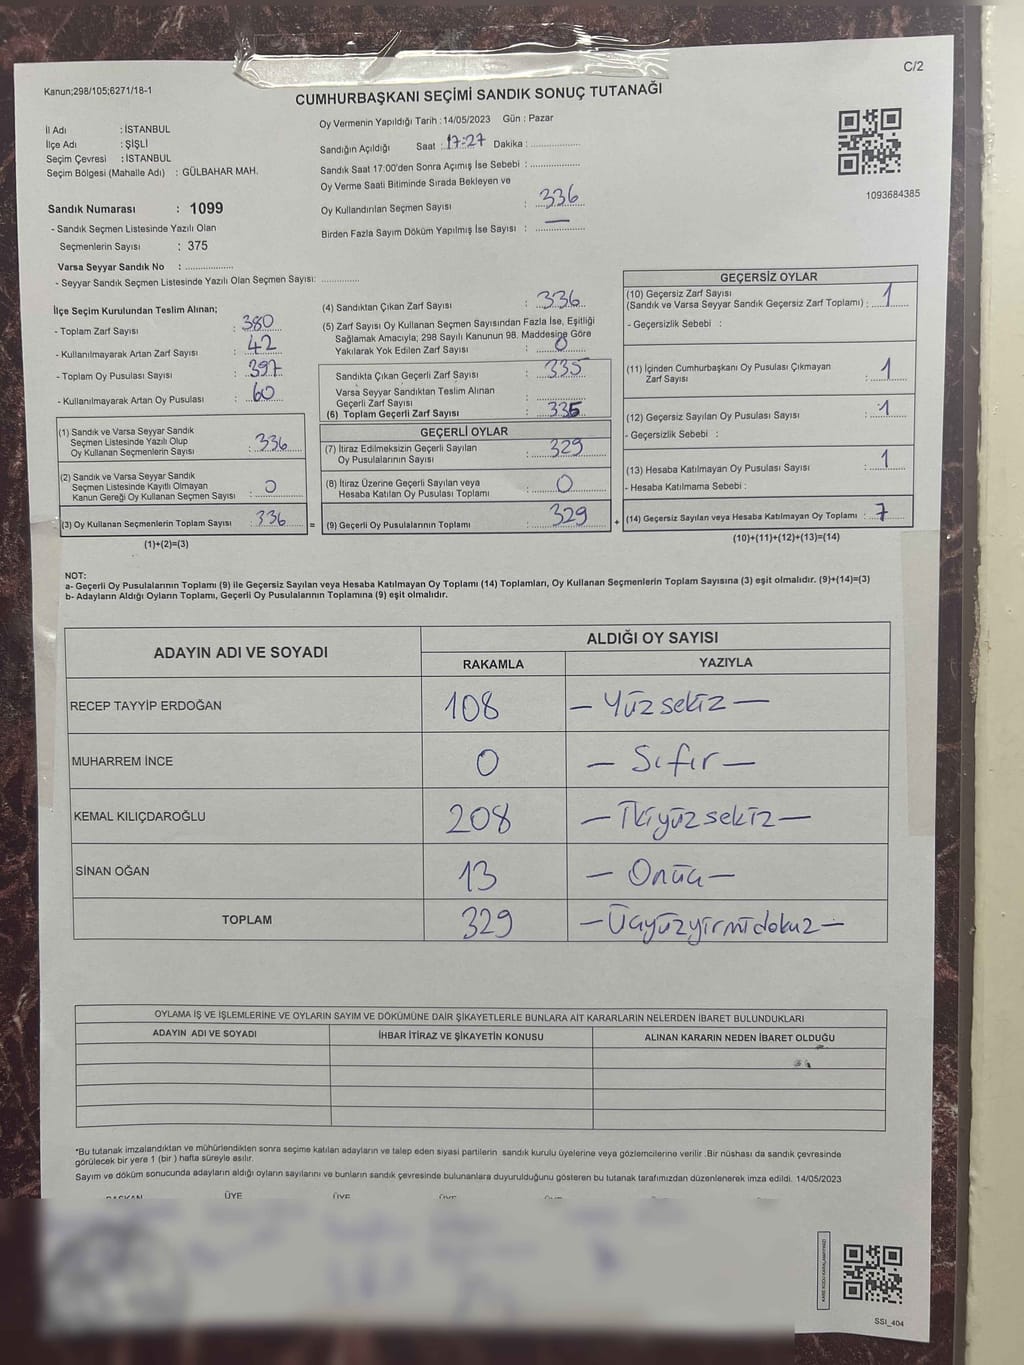 C/2
Kanun;298/105;6271/18-1
CUMHURBAŞKANI SEÇİMİ SANDIK SONUÇ TUTANAĞI
İl Adı : İSTANBUL
İlçe Adı : ŞİŞLİ
Seçim Çevresi : İSTANBUL
Seçim Bölgesi (Mahalle Adı) : GÜLBAHAR MAH.
Oy Vermenin Yapıldığı Tarih : 14/05/2023 Gün : Pazar
Sandığın Açıldığı Saat : 17:27 Dakika : ...............
Sandık Saat 17:00'den Sonra Açımış İse Sebebi : ...............
Oy Verme Saati Bitiminde Sırada Bekleyen ve
Oy Kullandırılan Seçmen Sayısı : 336
Birden Fazla Sayım Döküm Yapılmış İse Sayısı : —
1093684385
Sandık Numarası : 1099
- Sandık Seçmen Listesinde Yazılı Olan
Seçmenlerin Sayısı : 375
Varsa Seyyar Sandık No : ...............
- Seyyar Sandık Seçmen Listesinde Yazılı Olan Seçmen Sayısı: ............
İlçe Seçim Kurulundan Teslim Alınan;
- Toplam Zarf Sayısı : 380
- Kullanılmayarak Artan Zarf Sayısı : 42
- Toplam Oy Pusulası Sayısı : 397
- Kullanılmayarak Artan Oy Pusulası : 60
(1) Sandık ve Varsa Seyyar Sandık
Seçmen Listesinde Yazılı Olup
Oy Kullanan Seçmenlerin Sayısı : 336
(2) Sandık ve Varsa Seyyar Sandık
Seçmen Listesinde Kayıtlı Olmayan
Kanun Gereği Oy Kullanan Seçmen Sayısı : 0
(3) Oy Kullanan Seçmenlerin Toplam Sayısı : 336
(1)+(2)=(3)
(4) Sandıktan Çıkan Zarf Sayısı : 336
(5) Zarf Sayısı Oy Kullanan Seçmen Sayısından Fazla İse, Eşitliği
Sağlamak Amacıyla; 298 Sayılı Kanunun 98. Maddesine Göre
Yakılarak Yok Edilen Zarf Sayısı : 0
Sandıkta Çıkan Geçerli Zarf Sayısı : 335
Varsa Seyyar Sandıktan Teslim Alınan
Geçerli Zarf Sayısı : ...............
(6) Toplam Geçerli Zarf Sayısı : 335
GEÇERLİ OYLAR
(7) İtiraz Edilmeksizin Geçerli Sayılan
Oy Pusulalarının Sayısı : 329
(8) İtiraz Üzerine Geçerli Sayılan veya
Hesaba Katılan Oy Pusulası Toplamı : 0
= (9) Geçerli Oy Pusulalarının Toplamı : 329
GEÇERSİZ OYLAR
(10) Geçersiz Zarf Sayısı
(Sandık ve Varsa Seyyar Sandık Geçersiz Zarf Toplamı) : 1
- Geçersizlik Sebebi :
(11) İçinden Cumhurbaşkanı Oy Pusulası Çıkmayan
Zarf Sayısı : 1
(12) Geçersiz Sayılan Oy Pusulası Sayısı : 1
- Geçersizlik Sebebi :
(13) Hesaba Katılmayan Oy Pusulası Sayısı : 1
- Hesaba Katılmama Sebebi :
+ (14) Geçersiz Sayılan veya Hesaba Katılmayan Oy Toplamı : 7
(10)+(11)+(12)+(13)=(14)
NOT:
a- Geçerli Oy Pusulalarının Toplamı (9) ile Geçersiz Sayılan veya Hesaba Katılmayan Oy Toplamı (14) Toplamları, Oy Kullanan Seçmenlerin Toplam Sayısına (3) eşit olmalıdır. (9)+(14)=(3)
b- Adayların Aldığı Oyların Toplamı, Geçerli Oy Pusulalarının Toplamına (9) eşit olmalıdır.
ADAYIN ADI VE SOYADI ALDIĞI OY SAYISI
RAKAMLA YAZIYLA
RECEP TAYYİP ERDOĞAN 108 — Yüzsekiz —
MUHARREM İNCE 0 — Sıfır —
KEMAL KILIÇDAROĞLU 208 — İkiyüzsekiz —
SİNAN OĞAN 13 — Onüç —
TOPLAM 329 — Üçyüzyirmidokuz —
OYLAMA İŞ VE İŞLEMLERİNE VE OYLARIN SAYIM VE DÖKÜMÜNE DAİR ŞİKAYETLERLE BUNLARA AİT KARARLARIN NELERDEN İBARET BULUNDUKLARI
ADAYIN ADI VE SOYADI İHBAR İTİRAZ VE ŞİKAYETİN KONUSU ALINAN KARARIN NEDEN İBARET OLDUĞU
*Bu tutanak imzalandıktan ve mühürlendikten sonra seçime katılan adayların ve talep eden siyasi partilerin sandık kurulu üyelerine veya gözlemcilerine verilir .Bir nüshası da sandık çevresinde
görülecek bir yere 1 (bir ) hafta süreyle asılır.
Sayım ve döküm sonucunda adayların aldığı oyların sayılarını ve bunların sandık çevresinde bulunanlara duyurulduğunu gösteren bu tutanak tarafımızdan düzenlenerek imza edildi. 14/05/2023
BAŞKAN ÜYE ÜYE ÜYE
SSI_404